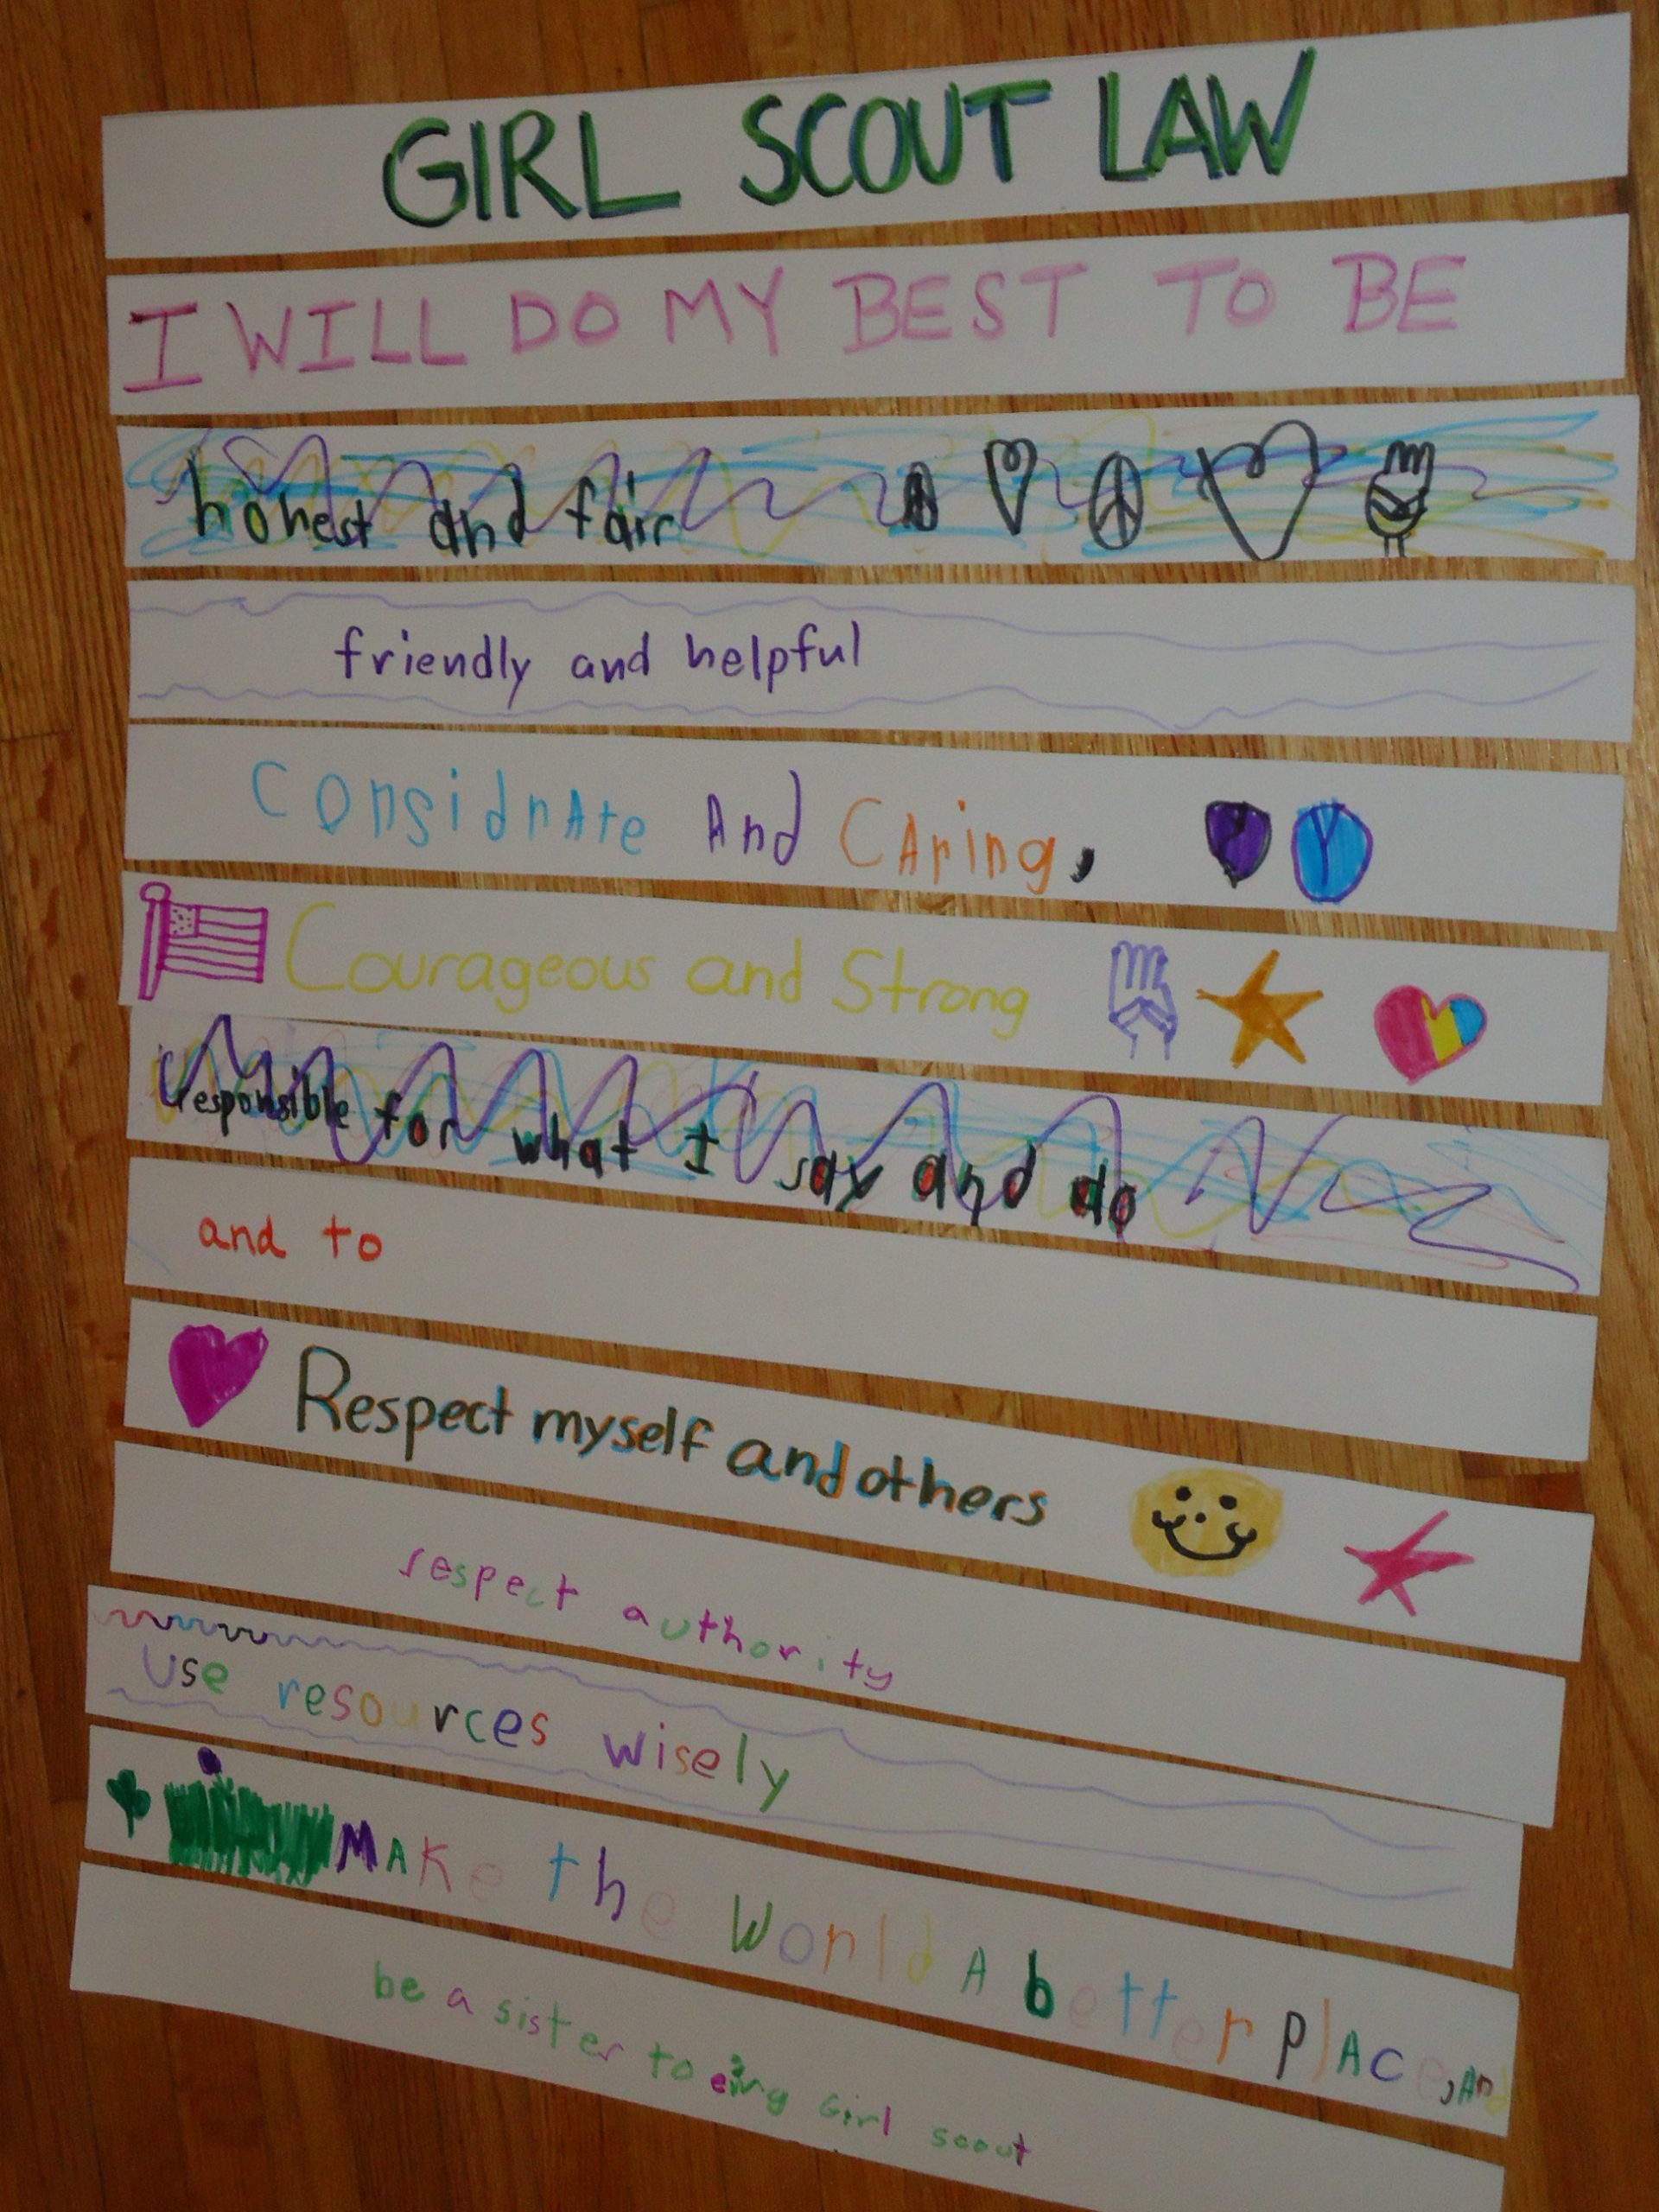 GIRL SCOUT LAW
I WILL DO MY BEST TO BE
honest and fair
friendly and helpful
ConsidnAte And CAring,
Courageous and Strong
responsible for what I say and do
and to
Respect myself and others
respect authority
Use resources wisely
MAke the World A better plAce, And
be a sister to Girl scout